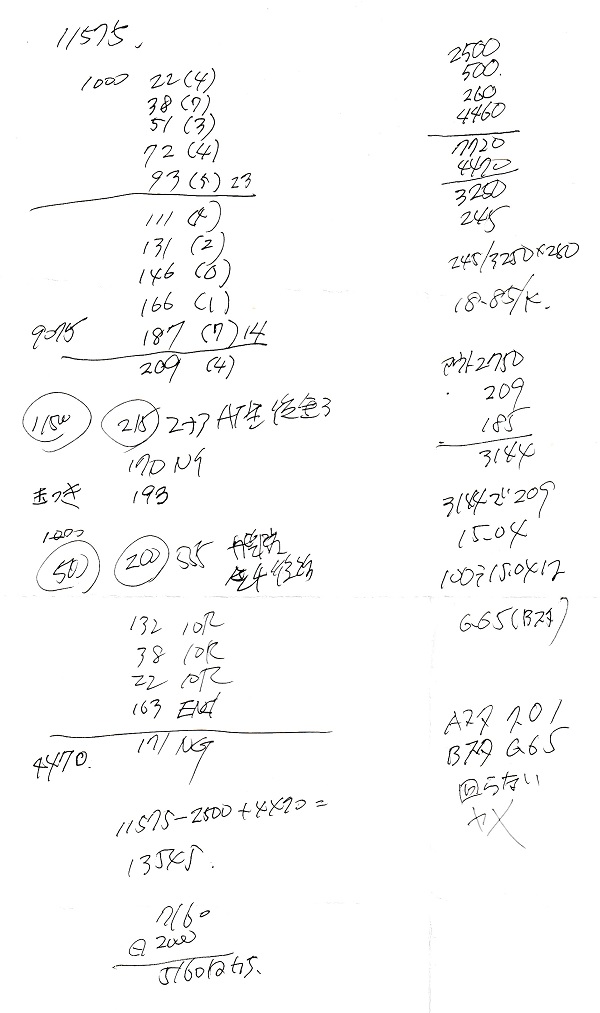 11575.
1000 22(4)
38(7)
51(3)
72(4)
93(5) 23
111
131(2)
146(0)
166(1)
9075 187(7)14
209(4)
1150 215
170 NG
玉つき 193
1000
500 200 355
132 10R
38 10R
22 10R
163 END
171 NG
4470.
11575-2500+4470=
13545.
7160
⊖ 2000
2500
500.
260
4460
7720
4470
3250
245
245/3250×250
18.85/K.
アウト2750
209
185
3144
3144で209
15.04
100÷15.04
6.65(Bスタ)
Aスタ 7.01
Bスタ 6.65
回らない
ヤメ